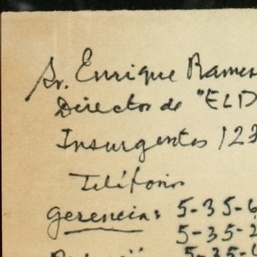 Sr. Enrique Rames
Director de "ELD
Insurgentes 123
Teléfonos
gerencia: 5-35-6
5-35-2
5-35-6